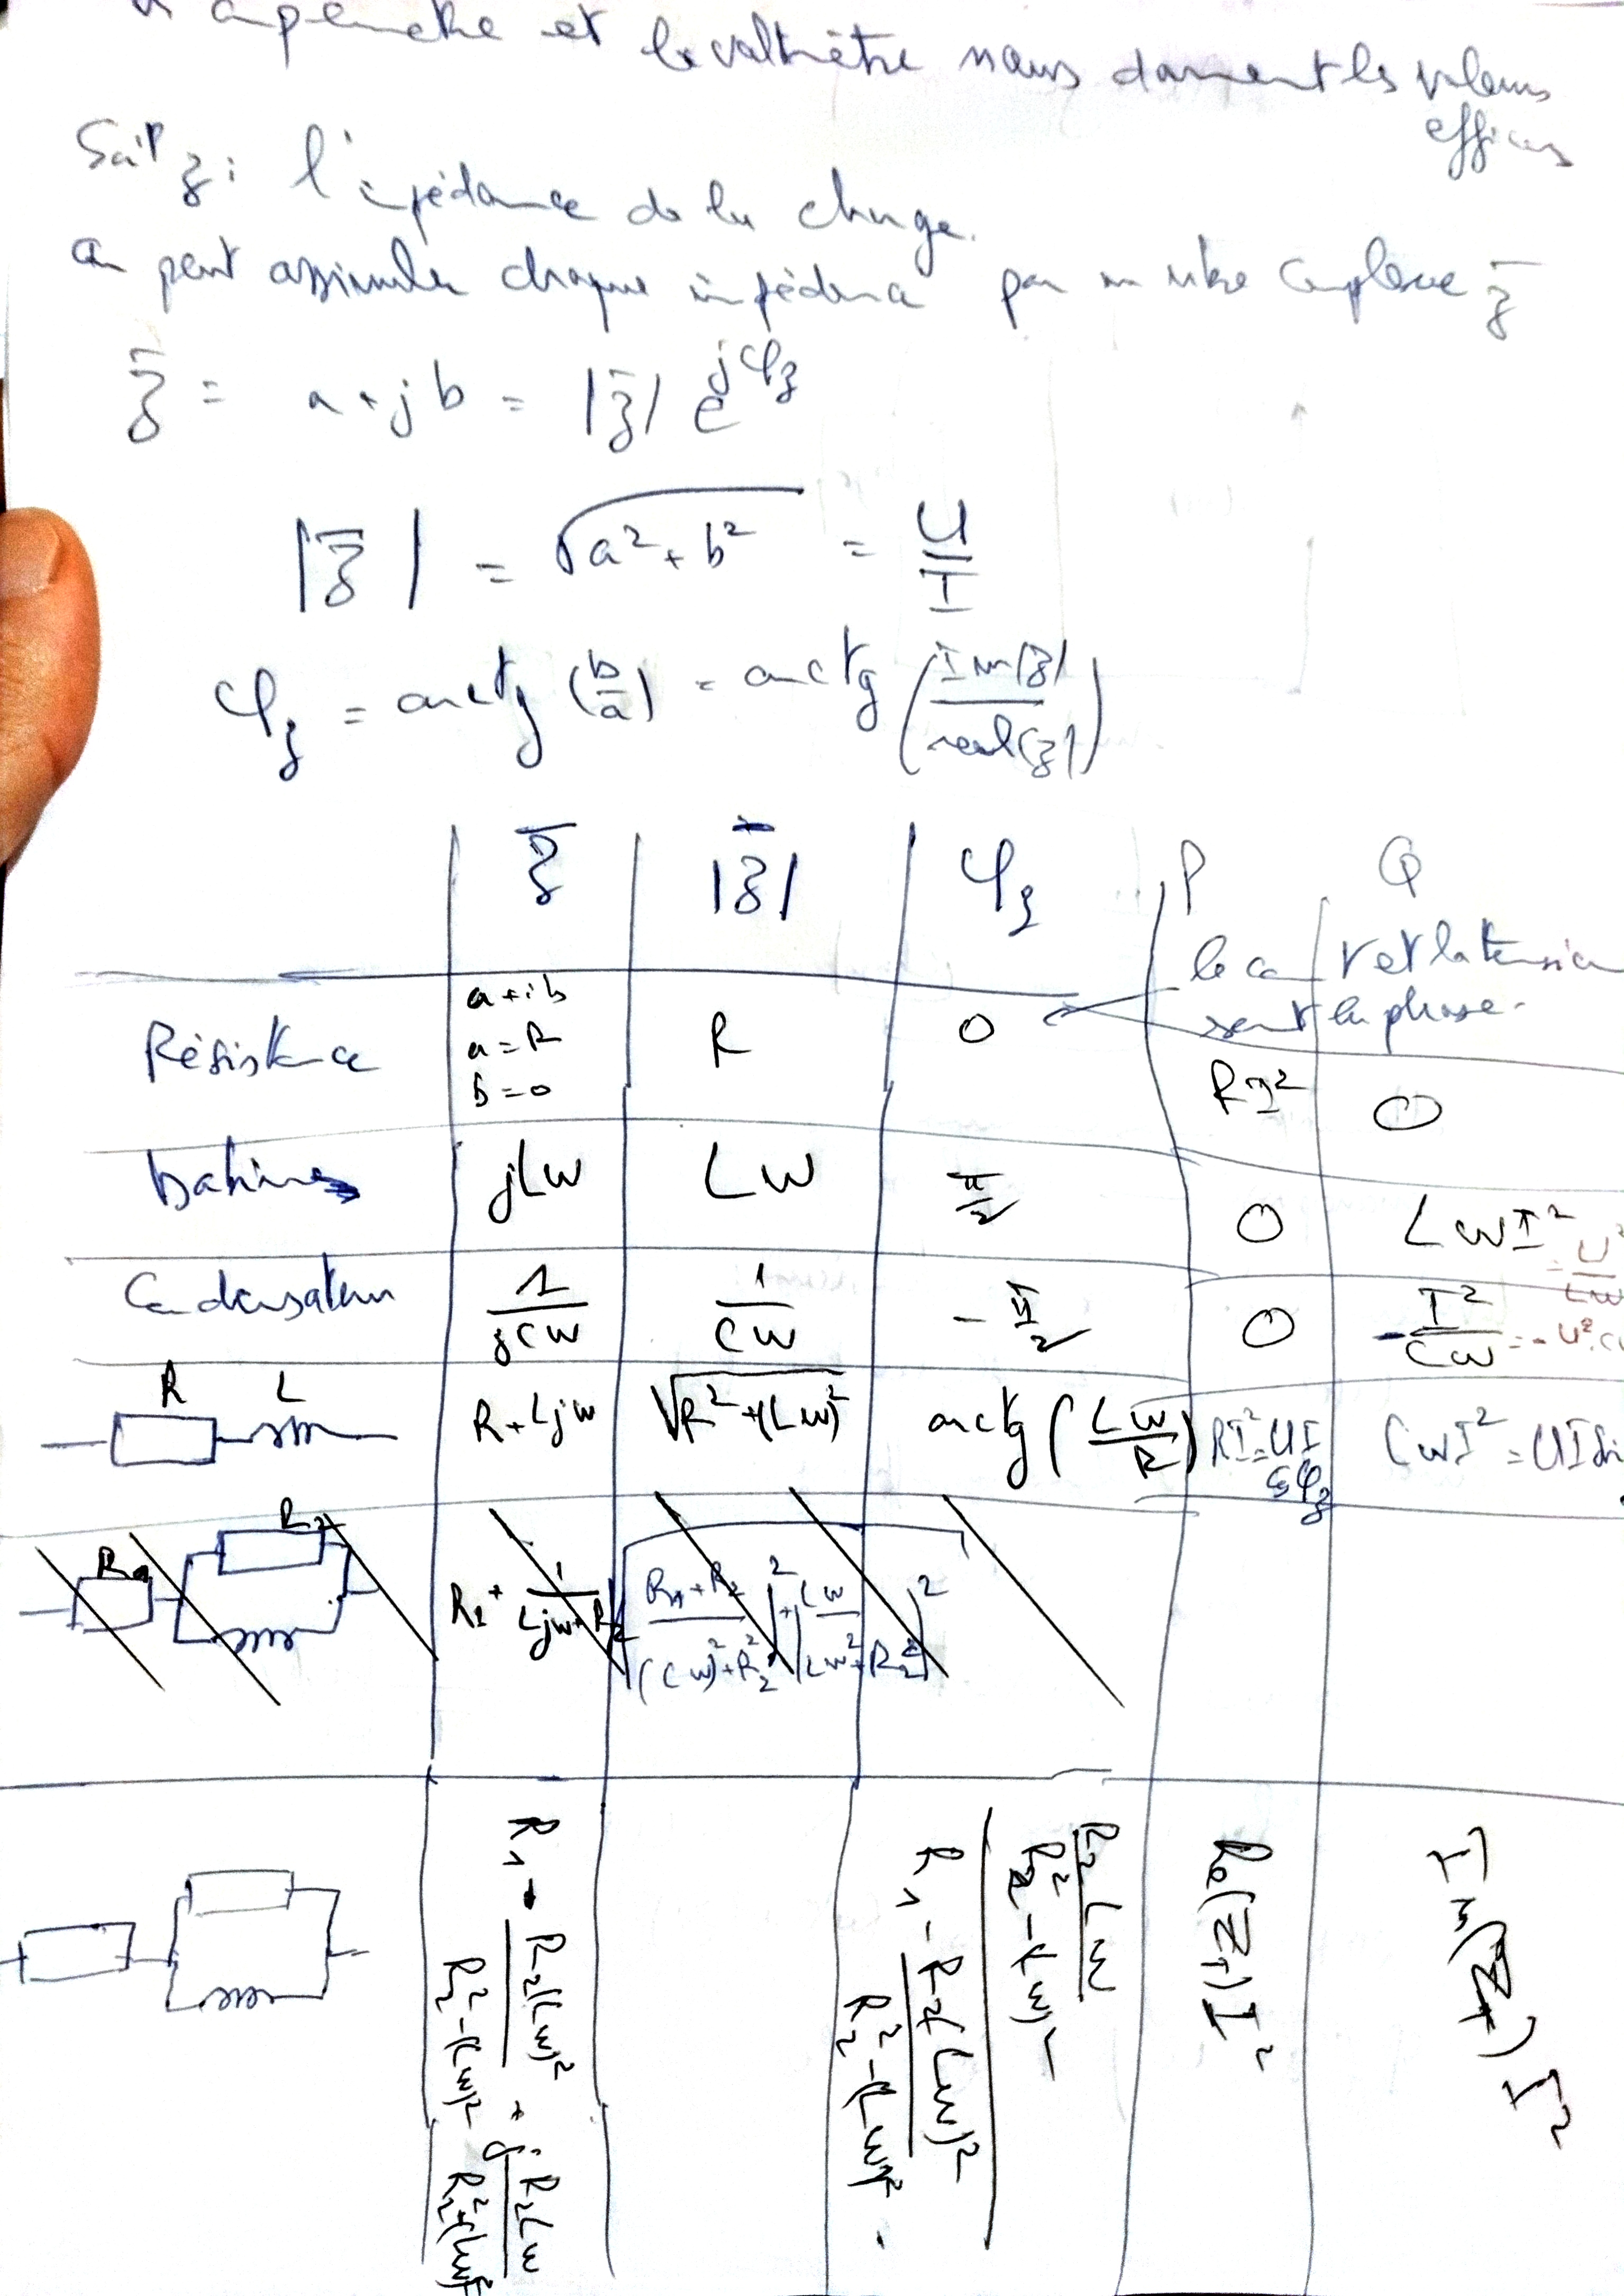 ampermetre et le voltmètre nous donnent les valeurs
efficas
Soit z : l'impédance de la charge.
on peut assimiler chaque impédance par un nbre complexe z̄
z̄ = a + jb = |z̄| e^jφz
|z̄| = √(a² + b²) = U/I
φz = arctg (b/a) = arctg (Im(z)/real(z))
z̄ |z̄| φz P Q
le cou rt et la tension
sont en phase.
Résistance a + ib a = R b = 0 R 0 RI² 0
Bobine jLw Lw π/2 0 LwI² = U²/Lw
Condensateur 1/jCw 1/Cw - π/2 0 - I²/Cw = - U².Cw
R L R + Ljw √(R² + (Lw)²) arctg (Lw/R) RI² = UI cosφz LwI² = UI sin
R1 R2 R1 + 1/Ljw + R2 √((R1 + R2)/((Lw)² + R2²))² + (Lw/(Lw² + R2²))²
R1 - R2(Lw)²/(R2² - (Lw)²) + j R2Lw/(R2² + (Lw)²)
R2Lw/(R2² - (Lw)²)
R1 - R2(Lw)²/(R2² - (Lw)²)
Re(ZT) I²
Im(ZT) I²